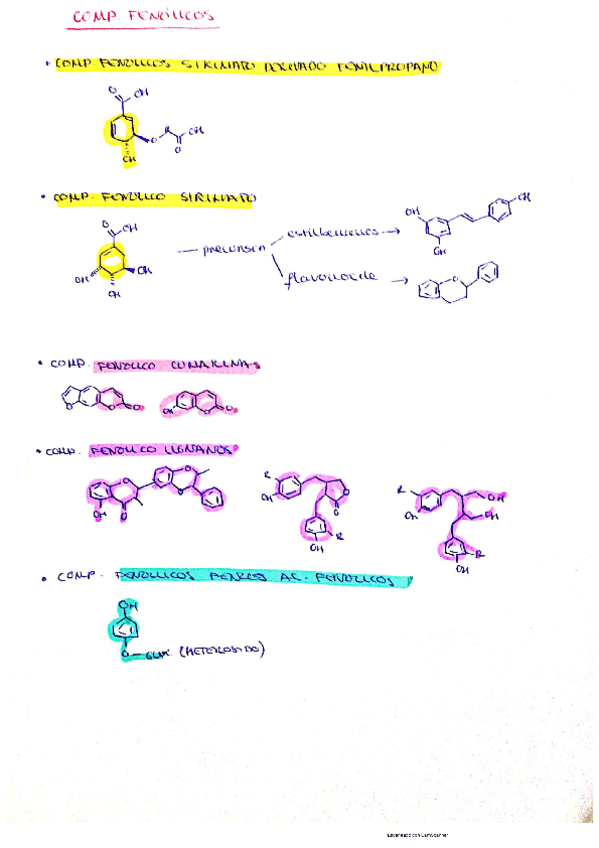 COMP. FENÓLICOS
• COMP FENOLICOS SIKIMATO DERIVADO FENILPROPANO
O OH
O O OH
OH
• COMP. FENOLICO SIKIMATO
O OH
OH OH
OH
precursor
estilbenenos
flavonoide
OH OH
OH
O
• COMP. FENOLICO CUMARINAS
O O O
OH O O
• COMP. FENOLICO LIGNANOS
O O O
OH O
R OH O O
R OH
R OH OH OH
R OH
• COMP. FENOLICOS FENOLES AC. FENOLICOS
OH
O — GLUC. (HETEROSIDO)
Escaneado con CamScanner